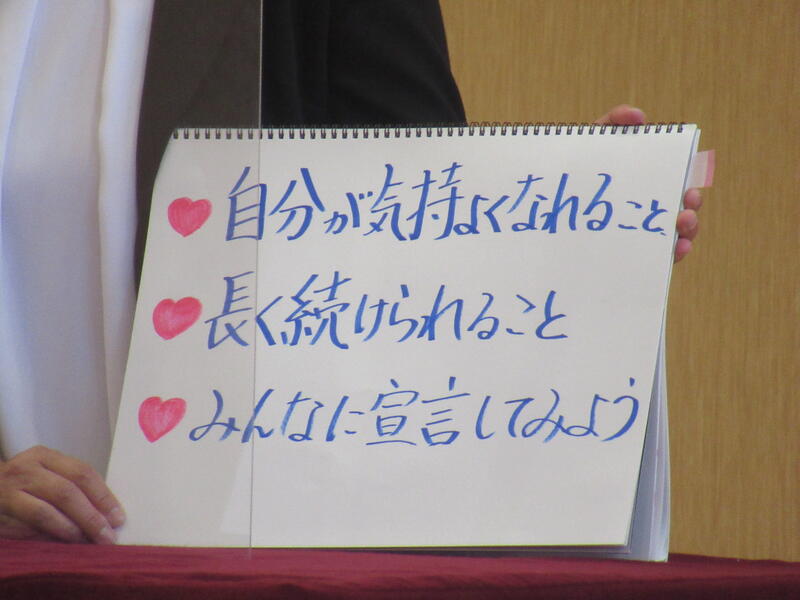 ♥自分が気持よくなれること
♥長く続けられること
♥みんなに宣言してみよう